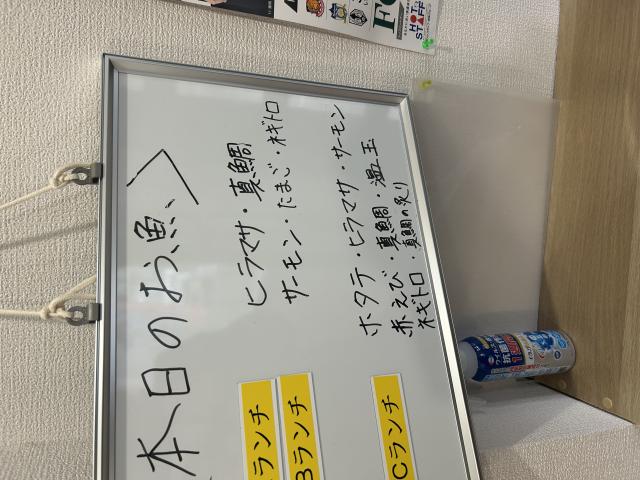 本日のお魚〉
ランチ
Bランチ
ヒラマサ・真鯛
サーモン・たまご・ネギトロ
Cランチ
ホタテ・ヒラマサ・サーモン
赤えび・真鯛・温玉
ネギトロ・真鯛の炙り
HOT
STAFF